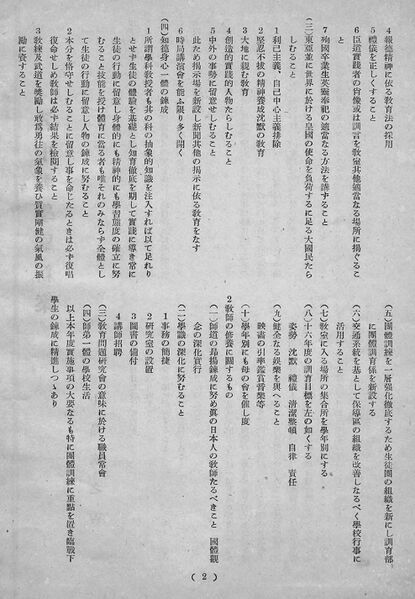 4 報德精神に依る教育法の活用
5 禮儀を正しくすること
6 臣道實踐者の肖像或は訓言を敎室其他適當なる場所に揭ぐること
7 殉國卒業生英靈奉祀の適當なる方法を講ずること
(三) 東亞並に世界に於ける皇國の使命を負荷するに足る大國民たらしむること
1 利己主義、自己中心主義排除
2 堅忍不拔の精神養成沈默の敎育
3 大地に親む敎育
4 創造的實踐的人物たらしむること
5 中外の事勢に留意せしむること
此ため揭示場を新設し新聞其他の揭示に依る敎育をなす
6 時局講演會を能ふ限り多く開く
(四) 知德身心一體の鍊成
1 所謂學科敎授者も其の科の抽象的知識を注入すれば以て足れりとせず生徒の體驗を基礎とし知育徹底を期して實踐に導き常に生徒の行動に留意し身體的にも精神的にも學習態度の確立に努むること技能を授け體育に當る者も唯それのみならず全體として生徒の行動に留意し人物の鍊成に努むること
2 本分を恪守せしむることに留意し事を命じたるときは必ず復唱復命せしめ敎師は必ず結果を檢閱すること
3 敎練及武道を奬勵し敢爲勇往の氣象を養ひ質實剛健の氣風の振勵に資すること
(五) 團體訓練を一層强化徹底するため生徒團の組織を新にし訓育部に團體訓育係を新設する
(六) 交通系統を基として保導區の組織を改善しなるべく學校行事に活用すること
(七) 敎室に入る場所の集合所を學年別にする
(八) 十六年度の訓育目標を左の如くする
姿勢 沈默 禮儀 清潔整頓 自律 責任
(九) 健全なる娛樂を與へること
映畵の引率鑑賞音樂等
(十) 學年別にも母の會を催し度
2 敎師の修養に關するもの
(一) 師道の昂揚鍊成に努め眞の日本人の敎師たるべきこと 國體觀念の深化實行
(二) 學識の深化に努むること
1 事務の簡捷
2 硏究室の設置
3 圖書の備付
4 講師招聘
(三) 敎育問題硏究會の意味に於ける職員常會
(四) 師弟一體の學校生活
以上本年度實施事項の大要なるも特に團體訓練に重點を置き臨戰下學生の鍊成に精進しつゝあり
( 2 )